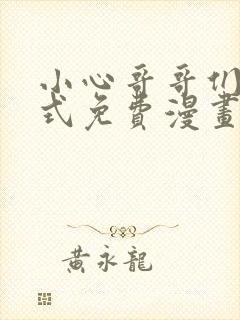 小心哥哥们
式免费漫畫
黃永龍